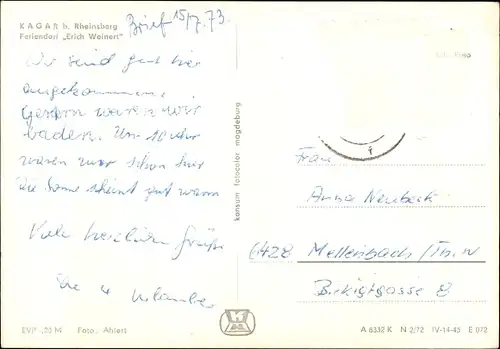 KAGAR b. Rheinsberg
Feriendorf „Erich Weinert"
Brief 15/7. 73.
Wir sind gut hier
angekommen.
Gestern waren wir
baden. Um 10 Uhr
waren wir schon hier
Die Sonne scheint gut warm
Viele herzlichen Grüße
Die 4
konsum fotocolor magdeburg
Frau
Anna Neubeck
6428 Mellenbach/Th.W
Birkigtgasse 8
EVP -,20 M Foto: Ahlert
A 6332 K N 2/72 IV-14-45 E 072